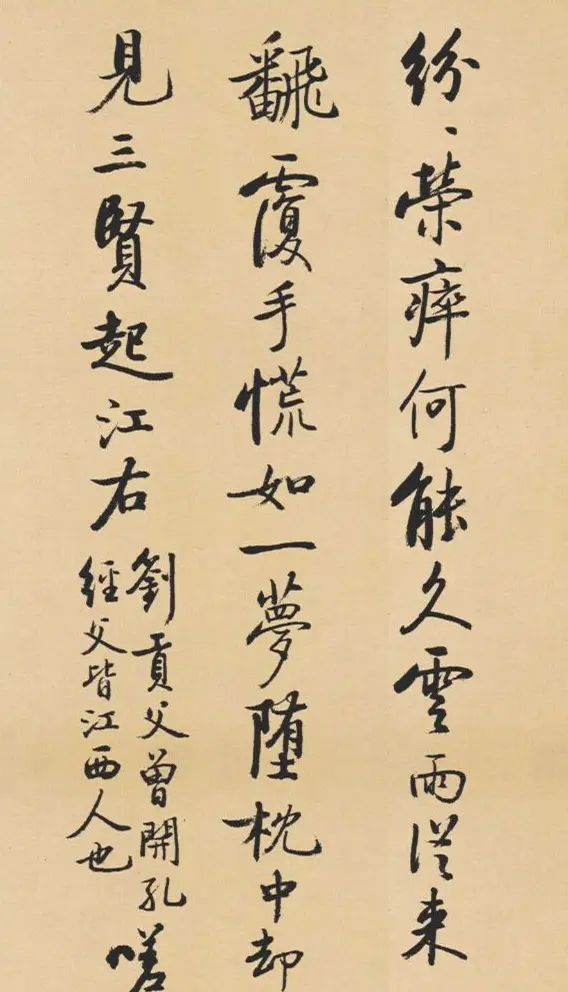 紛〻榮瘁何能久雲雨從来
飜覆手慌如一夢墮枕中却
見三賢起江右
劉貢父曾開孔
經父皆江西人也
嗟